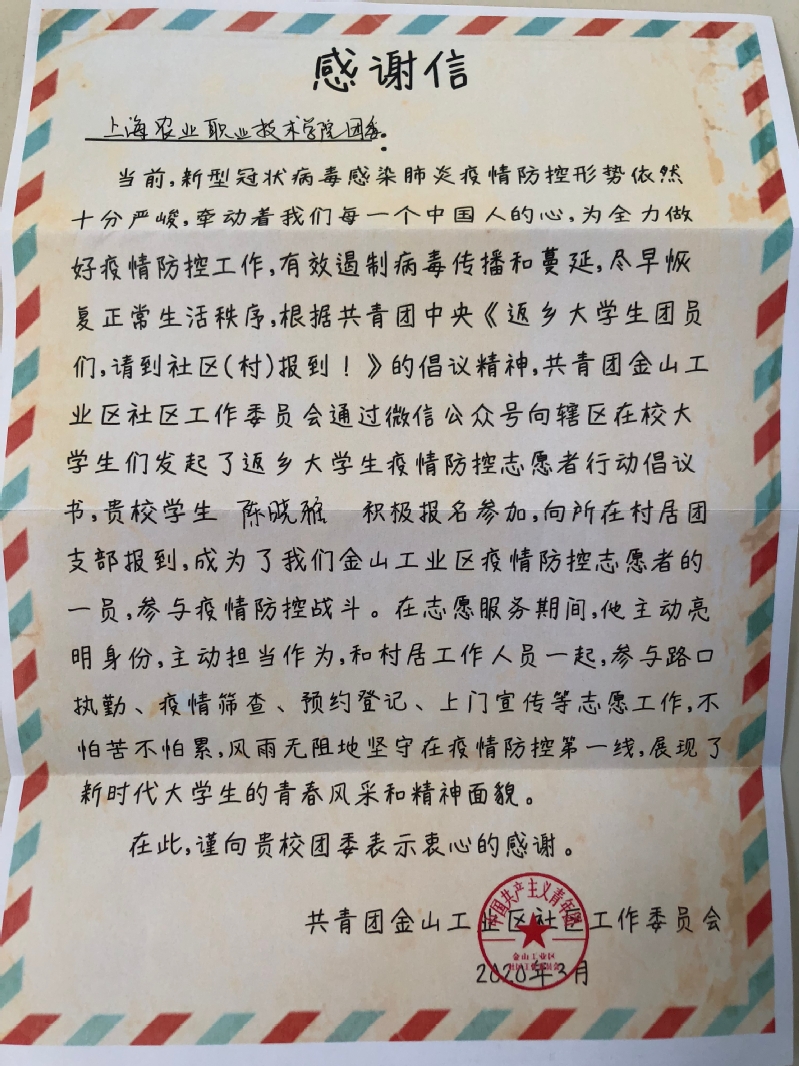 感谢信
上海农业职业技术学院团委:
当前,新型冠状病毒感染肺炎疫情防控形势依然
十分严峻,牵动着我们每一个中国人的心,为全力做
好疫情防控工作,有效遏制病毒传播和蔓延,尽早恢
复正常生活秩序,根据共青团中央《返乡大学生团员
们,请到社区(村)报到!》的倡议精神,共青团金山工
业区社区工作委员会通过微信公众号向辖区在校大
学生们发起了返乡大学生疫情防控志愿者行动倡议
书,贵校学生 陈晓雅 积极报名参加,向所在村居团
支部报到,成为了我们金山工业区疫情防控志愿者的
一员,参与疫情防控战斗。在志愿服务期间,他主动亮
明身份,主动担当作为,和村居工作人员一起,参与路口
执勤、疫情筛查、预约登记、上门宣传等志愿工作,不
怕苦不怕累,风雨无阻地坚守在疫情防控第一线,展现了
新时代大学生的青春风采和精神面貌。
在此,谨向贵校团委表示衷心的感谢。
共青团金山工业区社区工作委员会
2020年3月
中国共产主义青年团
金山工业区
社区工作委员会